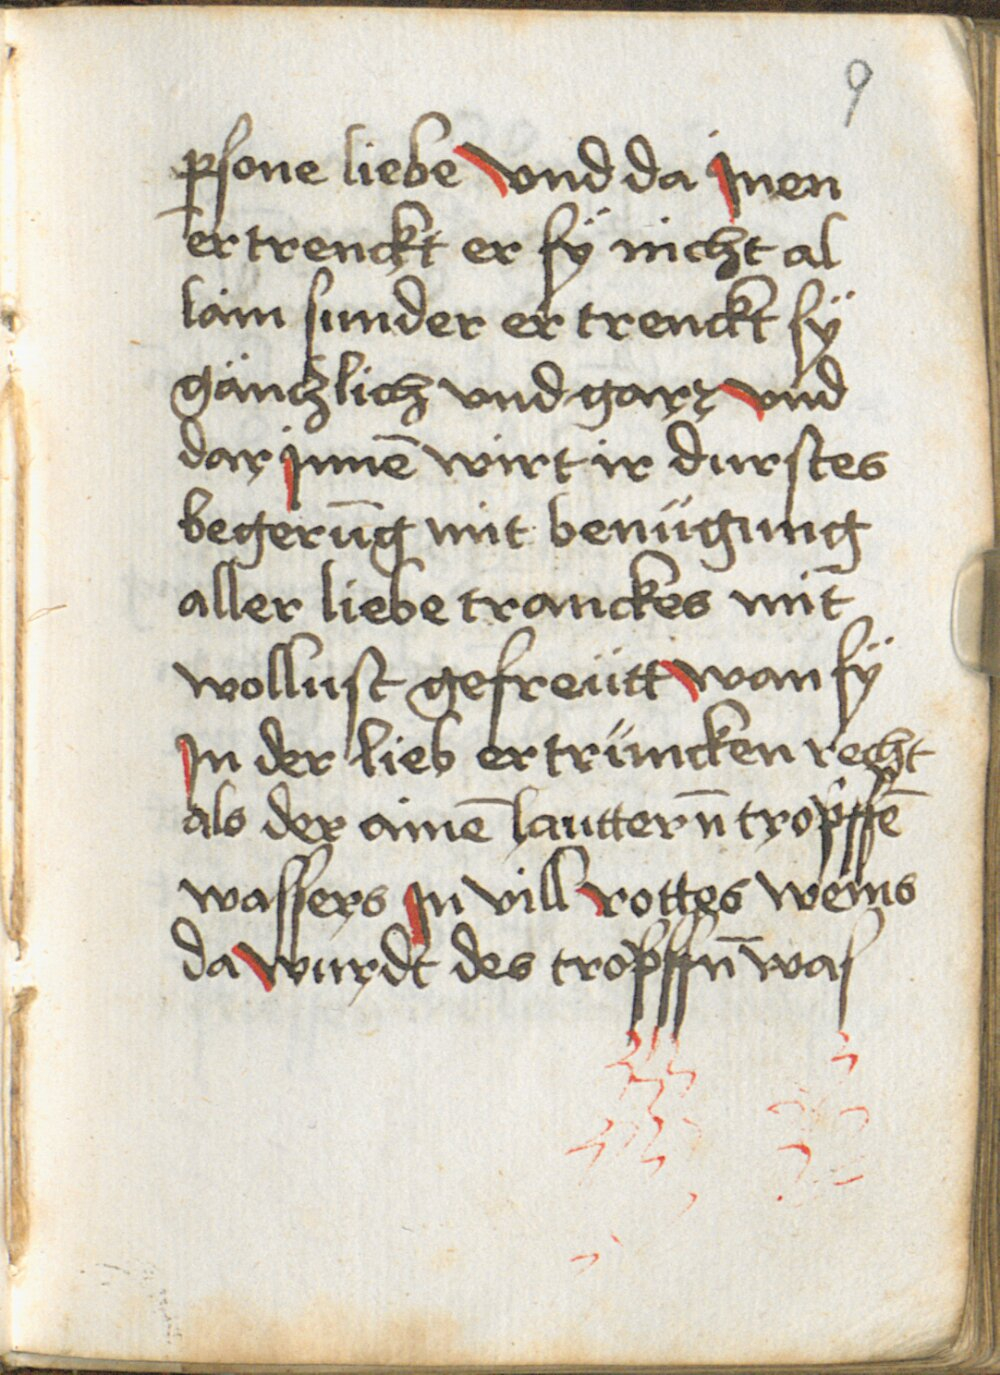 9
ꝑsone liebe vnd da jnen
ertrenckt er sÿ nicht al
lain sunder ertrenckt sÿ
gäntzlich vnd garz vnd
dar jnnē wirt ir durstes
begerūg mit benügung
aller liebe tranckes mit̄
wollust gefreütt wan sÿ
jn der lieb ertrüncken recht
als der ainē lauttern̄ tropffē
wassers jn vill rottes weins
da wurdt des tropffn̄ was